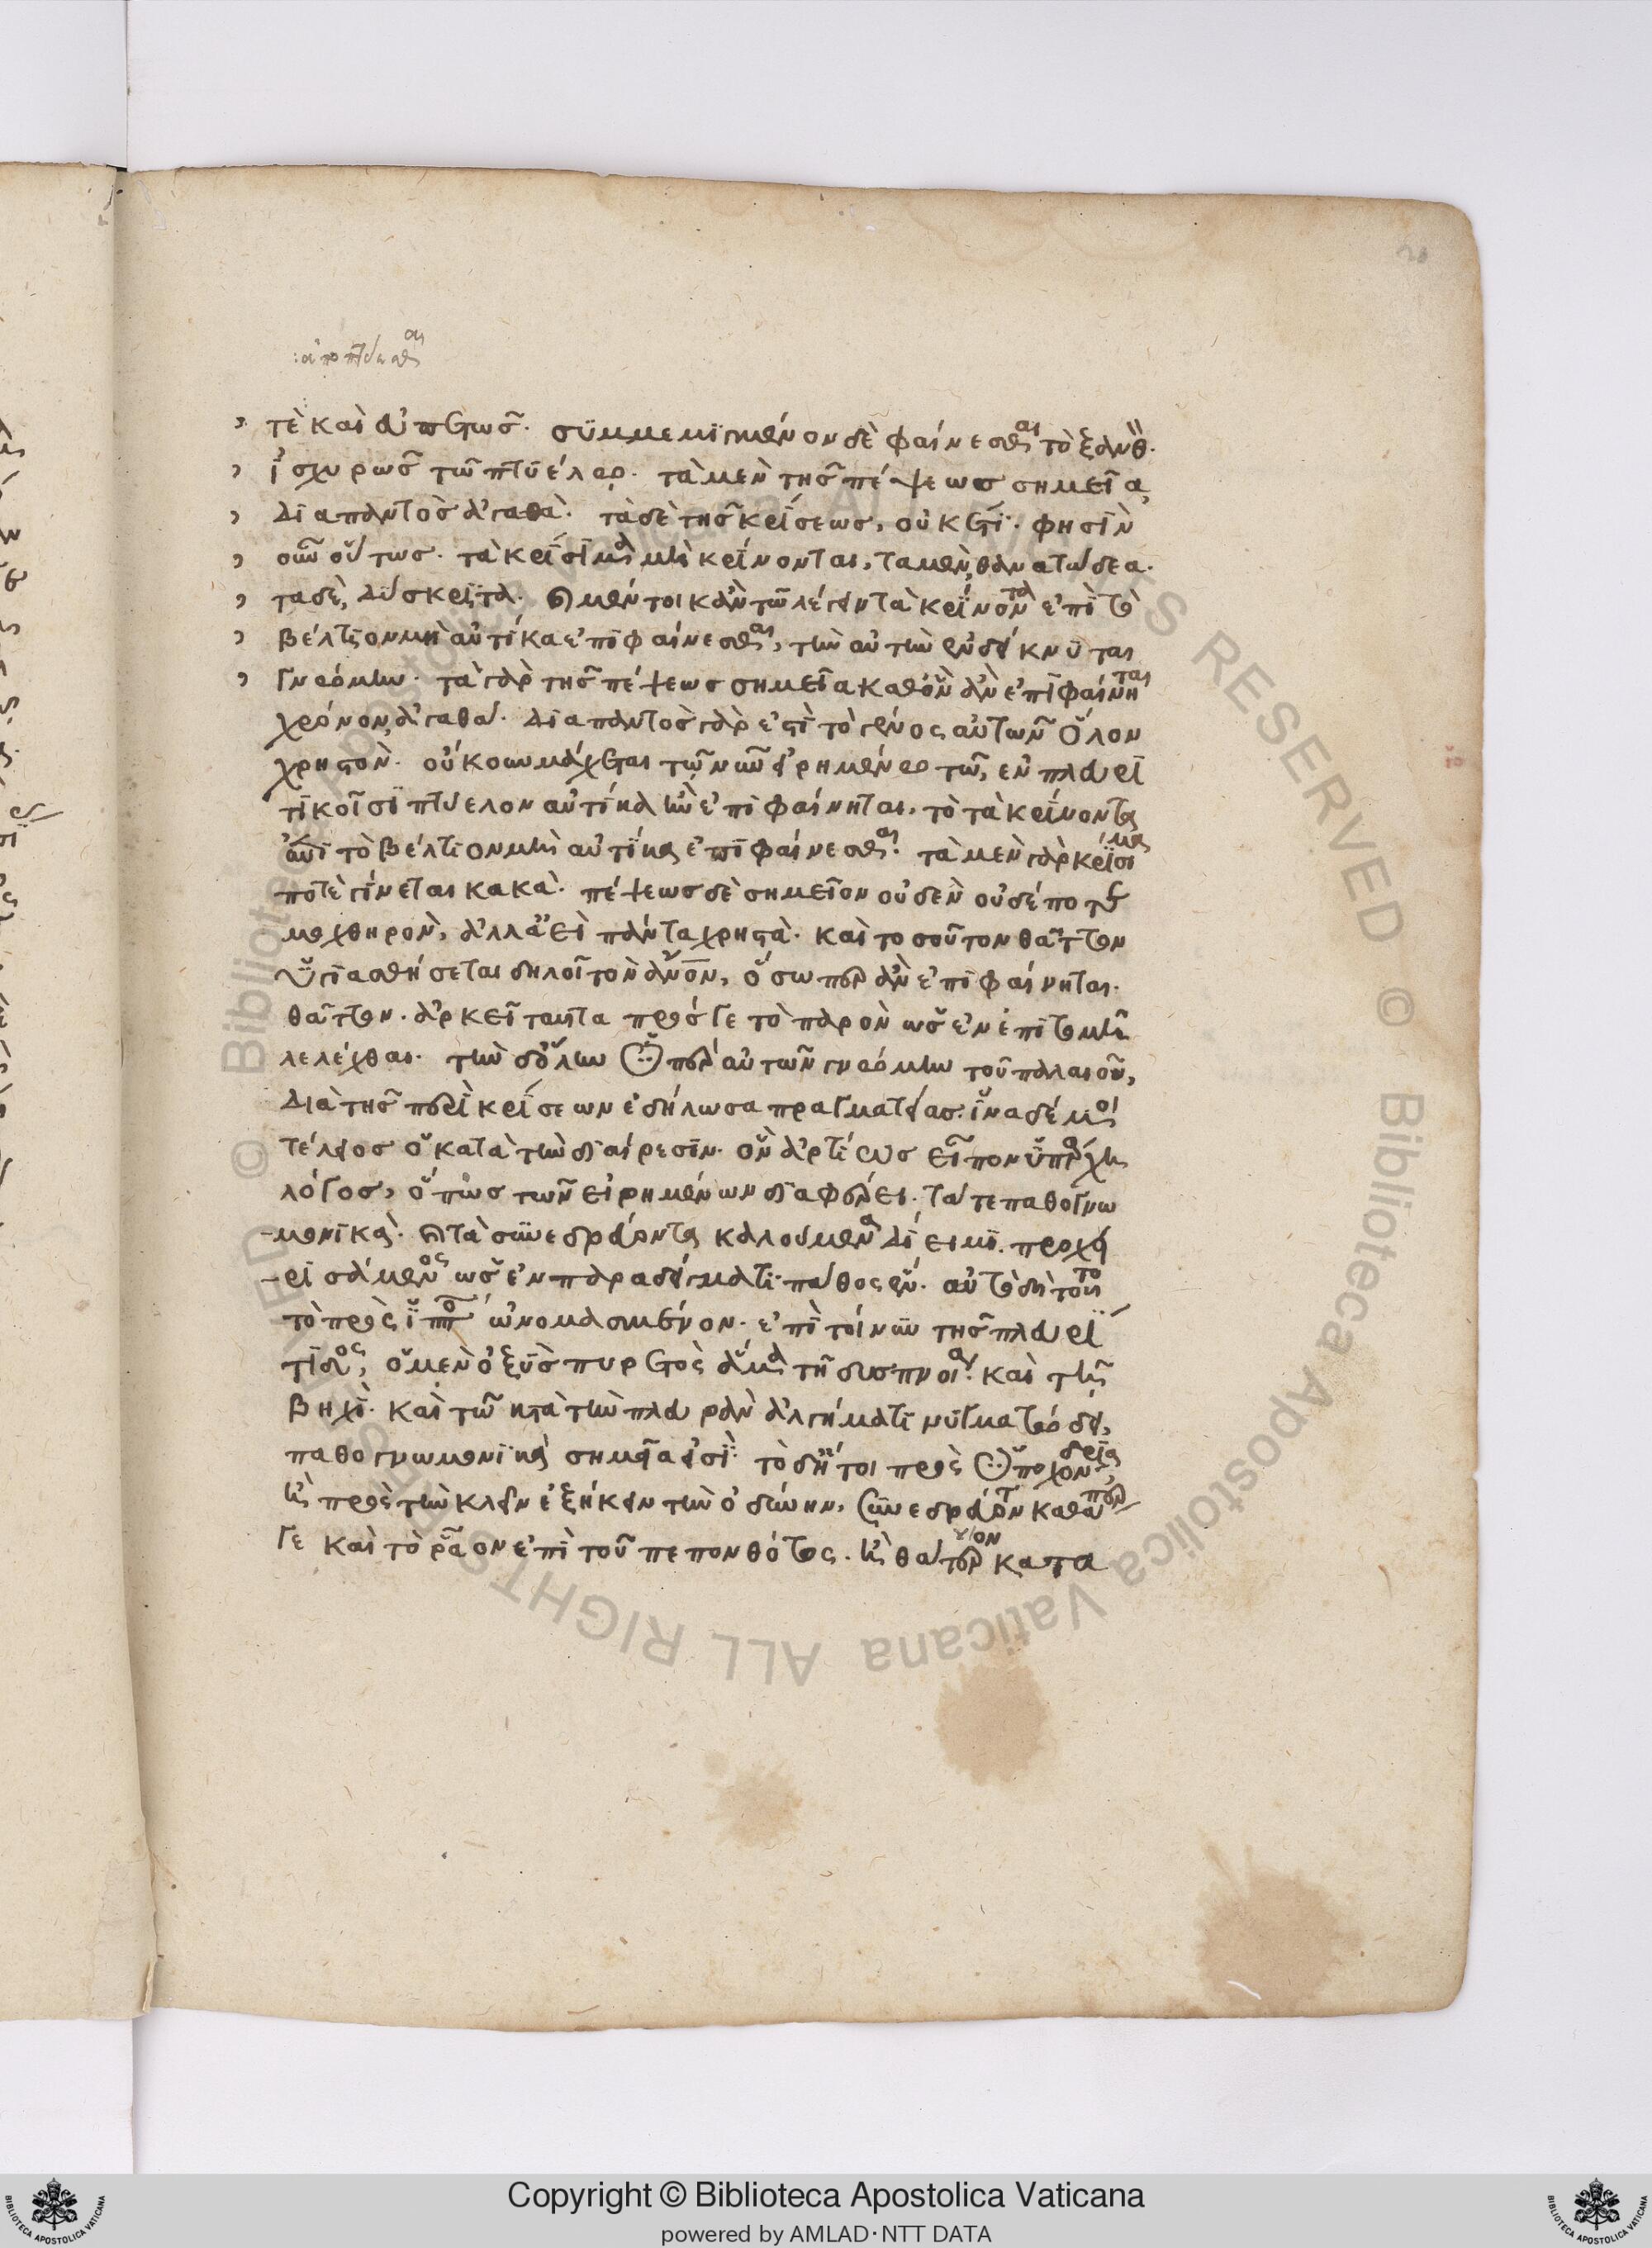 :ἀποπτύεσθαι
τὲ καὶ εὐπετῶς. συμμεμιγμένον δὲ φαίνεσθαι τὸ ξανθ.
ἰσχυρῶς τῶ πτυέλω. τὰ μὲν τῆς πέψεως σημεῖα,
διαπαντὸς ἀγαθά. τὰ δὲ τῆς κρίσεως, οὐκέτι. φησὶν
οὖν οὕτως. τὰ κρίσιμα μὴ κρίνοντα, τα μὲν, θανατώδεα.
τα δὲ, δύσκριτα. καὶ μέντοι κἀν τῶ λέγειν τὰ κρίνοντα ἐπὶ τὸ
βέλτιον μὴ αὐτίκα ἐπιφαίνεσθαι, τὴν αὐτὴν ἐνδείκνυται
γνώμην. τὰ γὰρ τῆς πέψεως σημεῖα καθ' ὃν ἂν ἐπιφαίνηται
χρόνον, ἀγαθά. διαπαντὸς γάρ ἐστι τὸ γένος αὐτῶν ὅλον
χρηστόν. οὔκουν μάχεται τῶ νῦν εἰρημένω τῶ, ἐν πλευρι
τικοῖσι πτύελον αὐτίκα ἢν ἐπιφαίνηται, τὸ τὰ κρίνοντα
ἐπὶ τὸ βέλτιον μὴ αὐτίκα ἐπιφαίνεσθαι. τὰ μὲν γὰρ κρίσιμα
ποτὲ γίνεται κακά. πέψεως δὲ σημεῖον οὐδὲν οὐδέποτε
μοχθηρόν, ἀλλ' ἀεὶ πάντα χρηστά. καὶ τοσοῦτον θᾶττον
ὑγιασθήσεται δηλοῖ τὸν ἄνον, ὅσωπερ ἂν ἐπιφαίνηται
θᾶττον. ἀρκεῖ ταῦτα πρός γε τὸ παρὸν ὡς ἐν ἐπιτομῆ
λελέχθαι. τὴν δ' ὅλην ὑπὲρ αὐτῶν γνώμην τοῦ παλαιοῦ,
διὰ τῆς περὶ κρίσεων ἐδήλωσα πραγματείας. ἵνα δέ μοι
τέλειος ὁ κατὰ τὴν διαίρεσιν ὃν ἀρτίως εἶπον ὑπάρχη
λόγος, ὅπως τῶν εἰρημένων διαφέρει τά τε παθογνω
-μονικὰ καὶ τὰ συνεδρεύοντα καλούμενα δίειμι. προχει
-ρισάμενος ὡς ἐν παραδείγματι πάθος ἕν. αὐτὸ δὴ τοῦτο
τὸ πρὸς ἱππο ὠνομασμένον. ἐπὶ τοίνυν τῆς πλευρί
τιδος, ὁ μὲν ὀξὺς πυρετὸς ἅμα τῆ δυσπνοία καὶ τῆ
βηχὶ καὶ τῶ κατὰ τὴν πλευρὰν ἀλγήματι νυγματώδει,
παθογνωμονικὰ σημεῖα εἰσὶ. τὸ δή τοι πρὸς ὑποχόνδρια
ἢ πρὸς τὴν κλεῖν ἐξήκειν τὴν ὀδύνην, συνεδρεῦον καθάπερ
γε καὶ τὸ ρᾶον ἐπὶ τοῦ πεπονθότος. ἢ θάτερον κατα